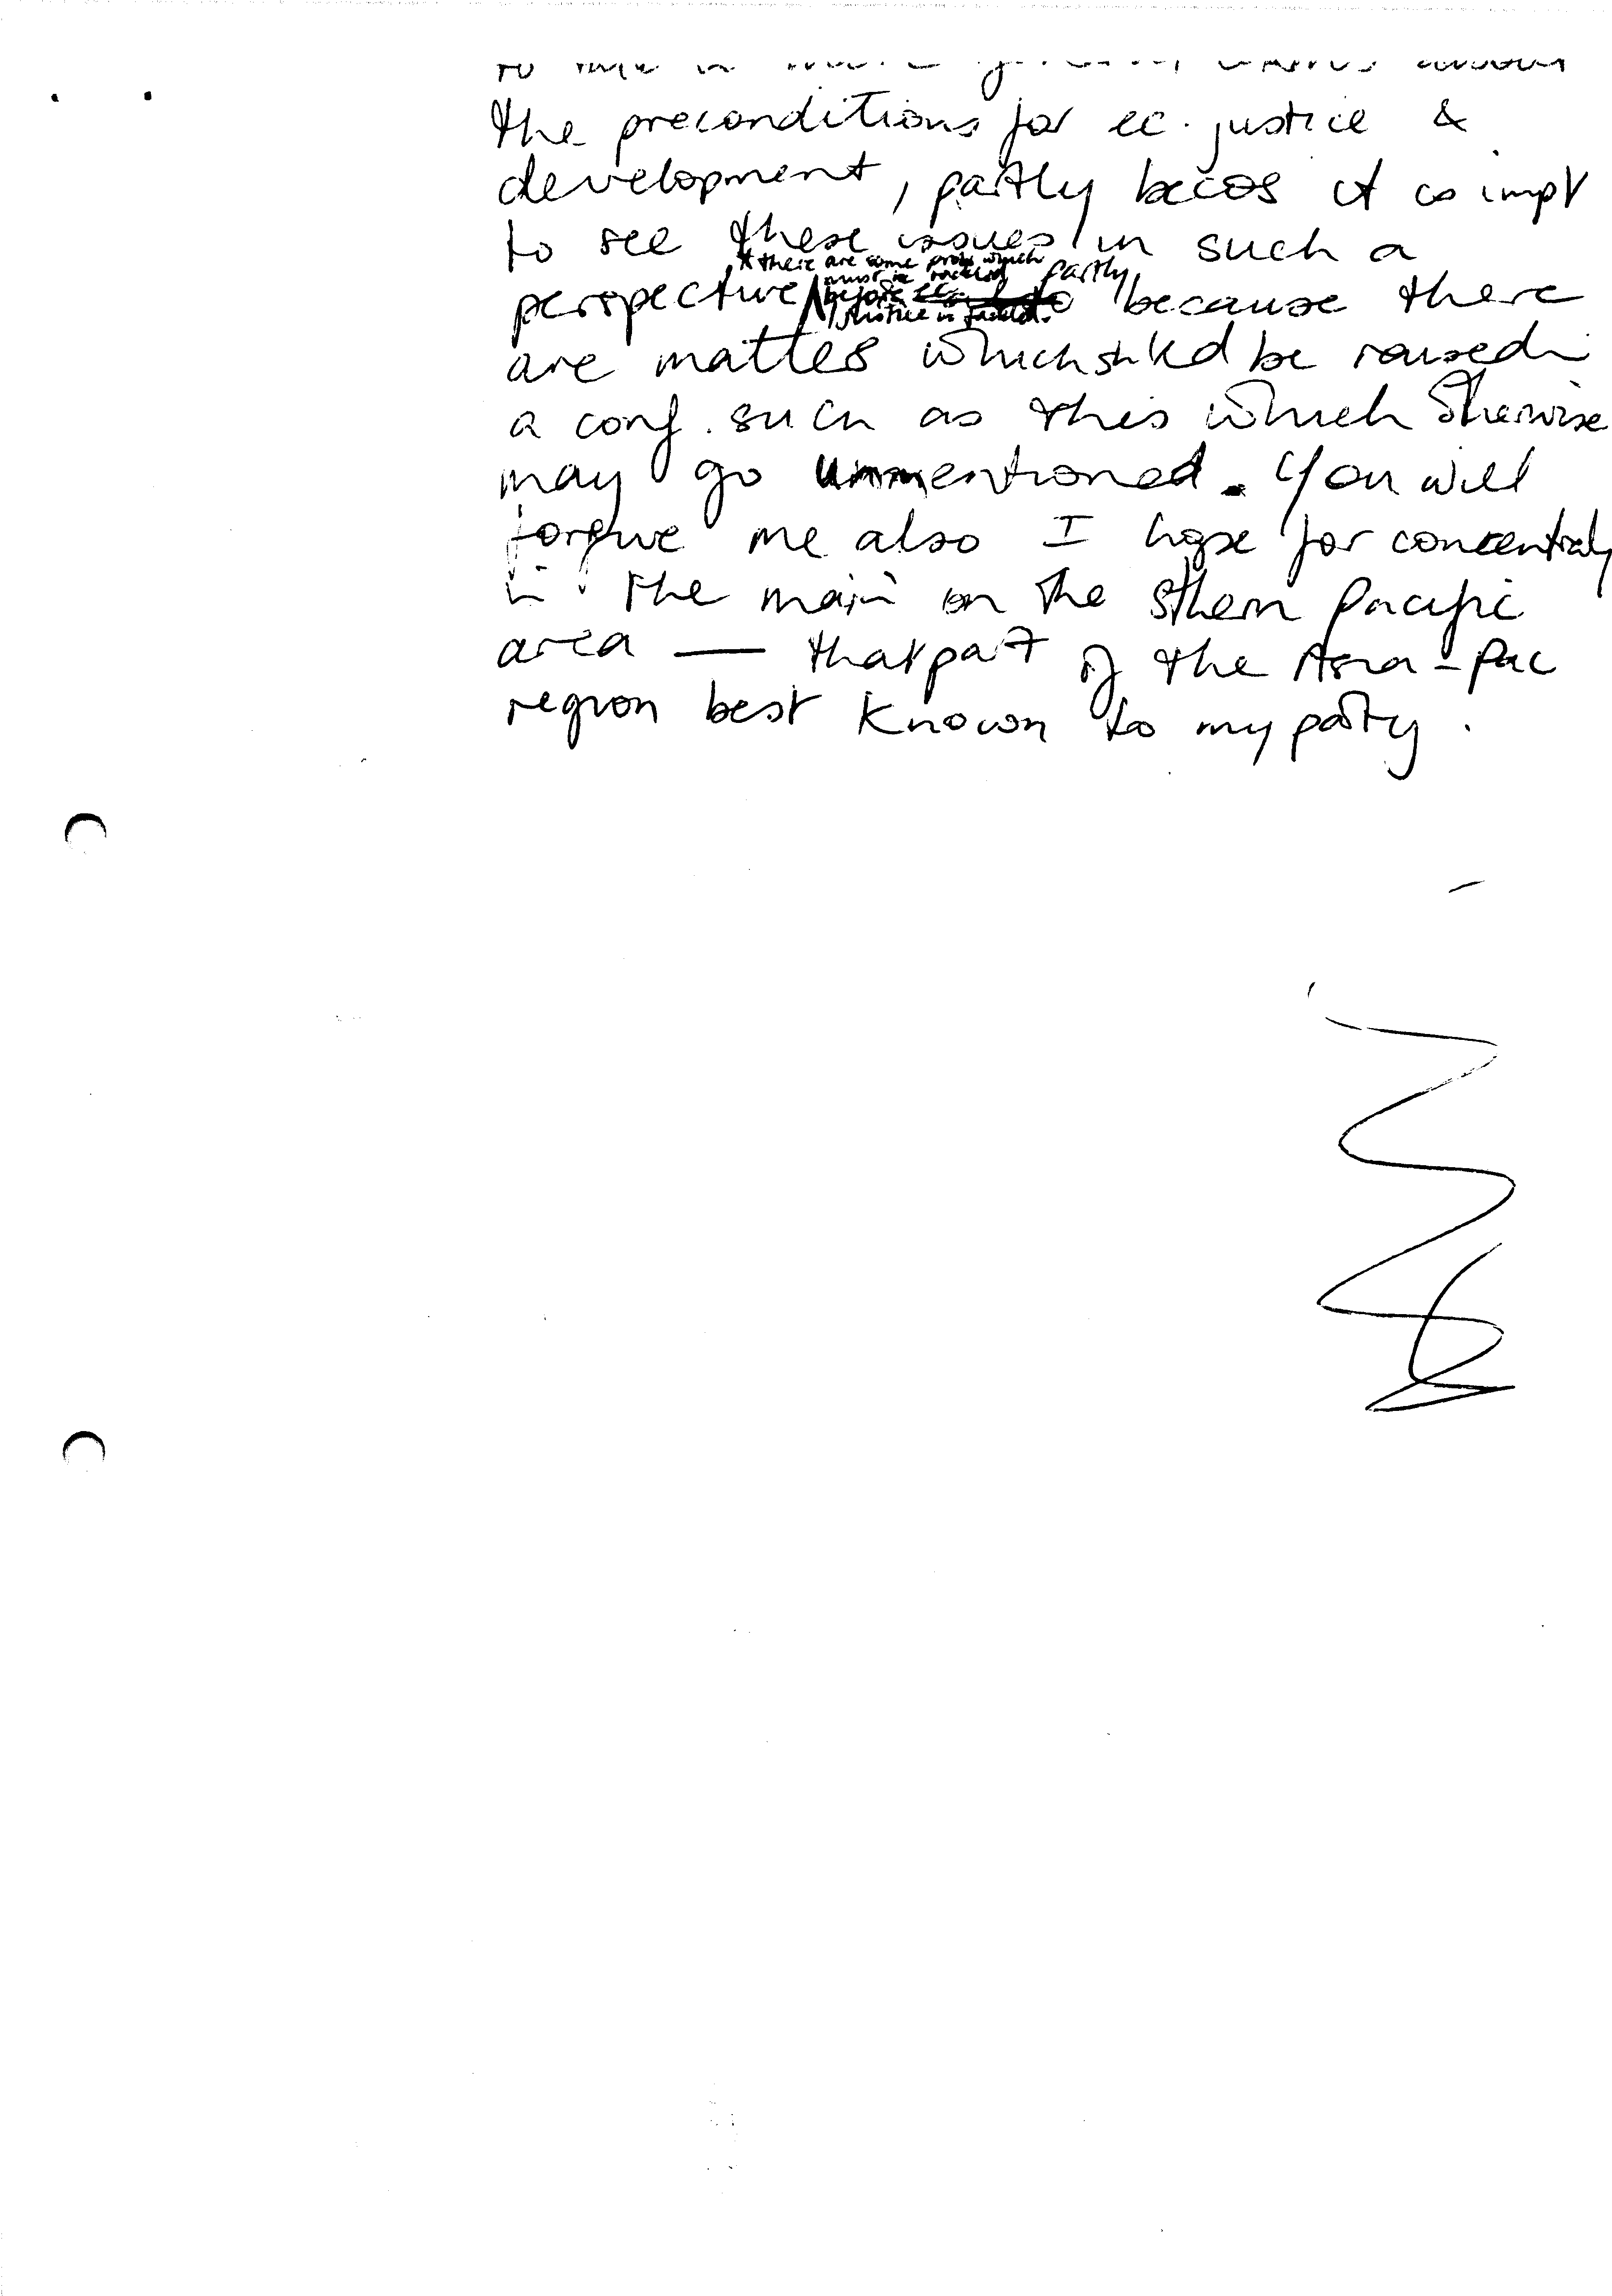 the preconditions for ec. justice &
development, partly becos it is impt
to see these issues in such a
& there are some probs which
must be tackled
before ec
justice is tackled.
partly
perspective, because there
are matters which shld be raised in
a conf. such as this which otherwise
may go unmentioned. You will
forgive me also I hope for concentratg
in the main on the sthern Pacific
area — that part of the Asia-Pac
region best known to my party.